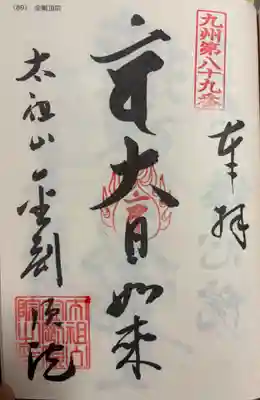 (89) 金剛頂院
九州第八十九番
奉拝
大日如来
太祖山金剛頂院